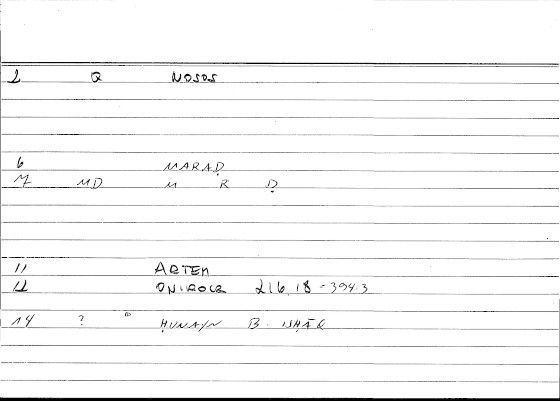 2 Q NOSOS
6 MARAḌ
M MD M R Ḍ
11 ARTEM
12 ONIROCR 216,18-394.3
14 ? ḤUNAYN B. ISḤĀQ